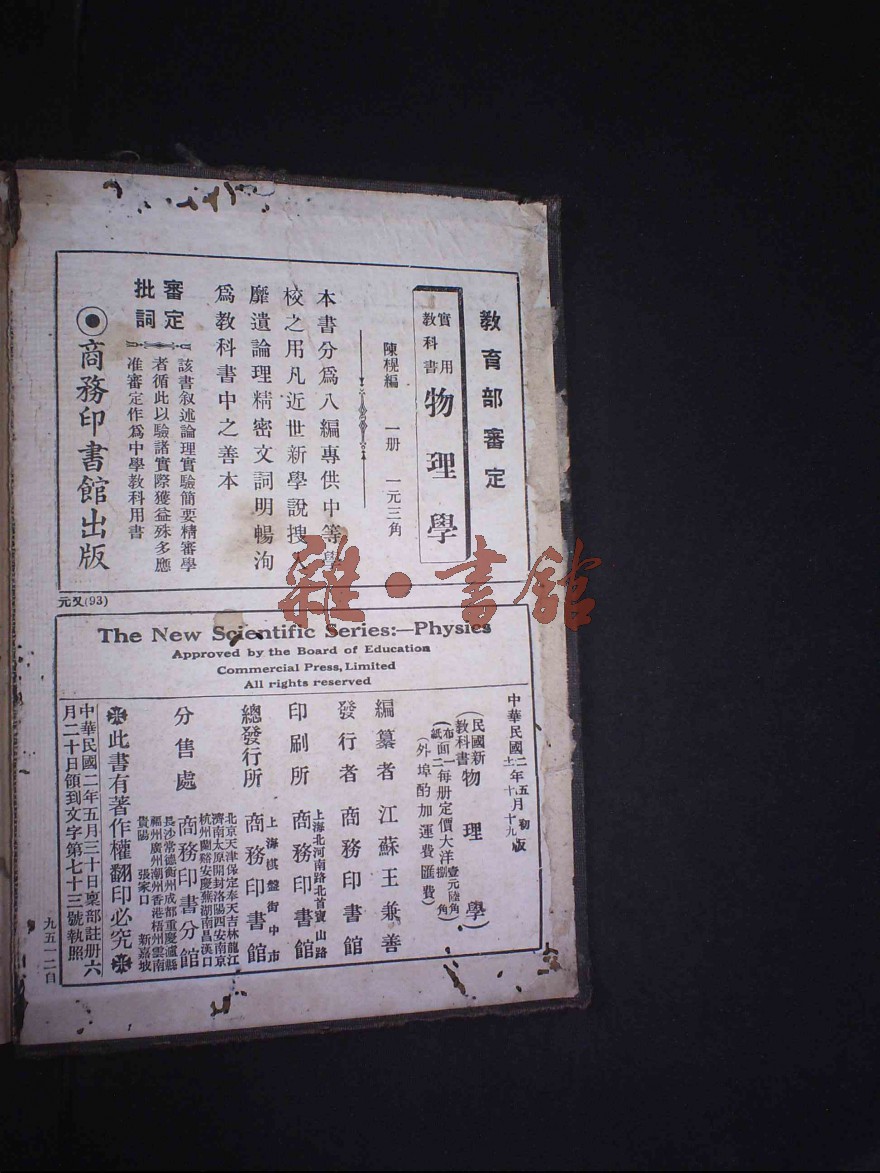 教育部審定
實用
教科書
物理學
陳榥編 一册 一元三角
本書分爲八編專供中等學
校之用凡近世新學說搜入
靡遺論理精密文詞明暢洵
爲教科書中之善本
審定
批詞
該書叙述論理實驗簡要精審學
者循此以驗諸實際獲益殊多應
准審定作爲中學教科用書
商務印書館出版
元又(93)
The New Scientific Series:—Physics
Approved by the Board of Education
Commercial Press, Limited
All rights reserved
中華民國二年五月初版
(民國新
教科書
物理學)
每册定價大洋
(外埠酌加運費匯費)
編纂者 江蘇王兼善
發行者 商務印書館
印刷所
上海北河南路北首寶山路
商務印書館
總發行所
上海棋盤街中市
商務印書館
分售處
北京天津保定奉天吉林龍江
濟南太原開封洛陽西安南京
杭州蘭谿安慶蕪湖南昌漢口
商務印書分館
長沙常德衡州成都重慶瀘縣
福州廣州潮州香港梧州雲南
貴陽 張家口 新嘉坡
此書有著作權翻印必究
中華民國二年五月三十日稟部註册六
月二十日領到文字第七十三號執照
雜·書館